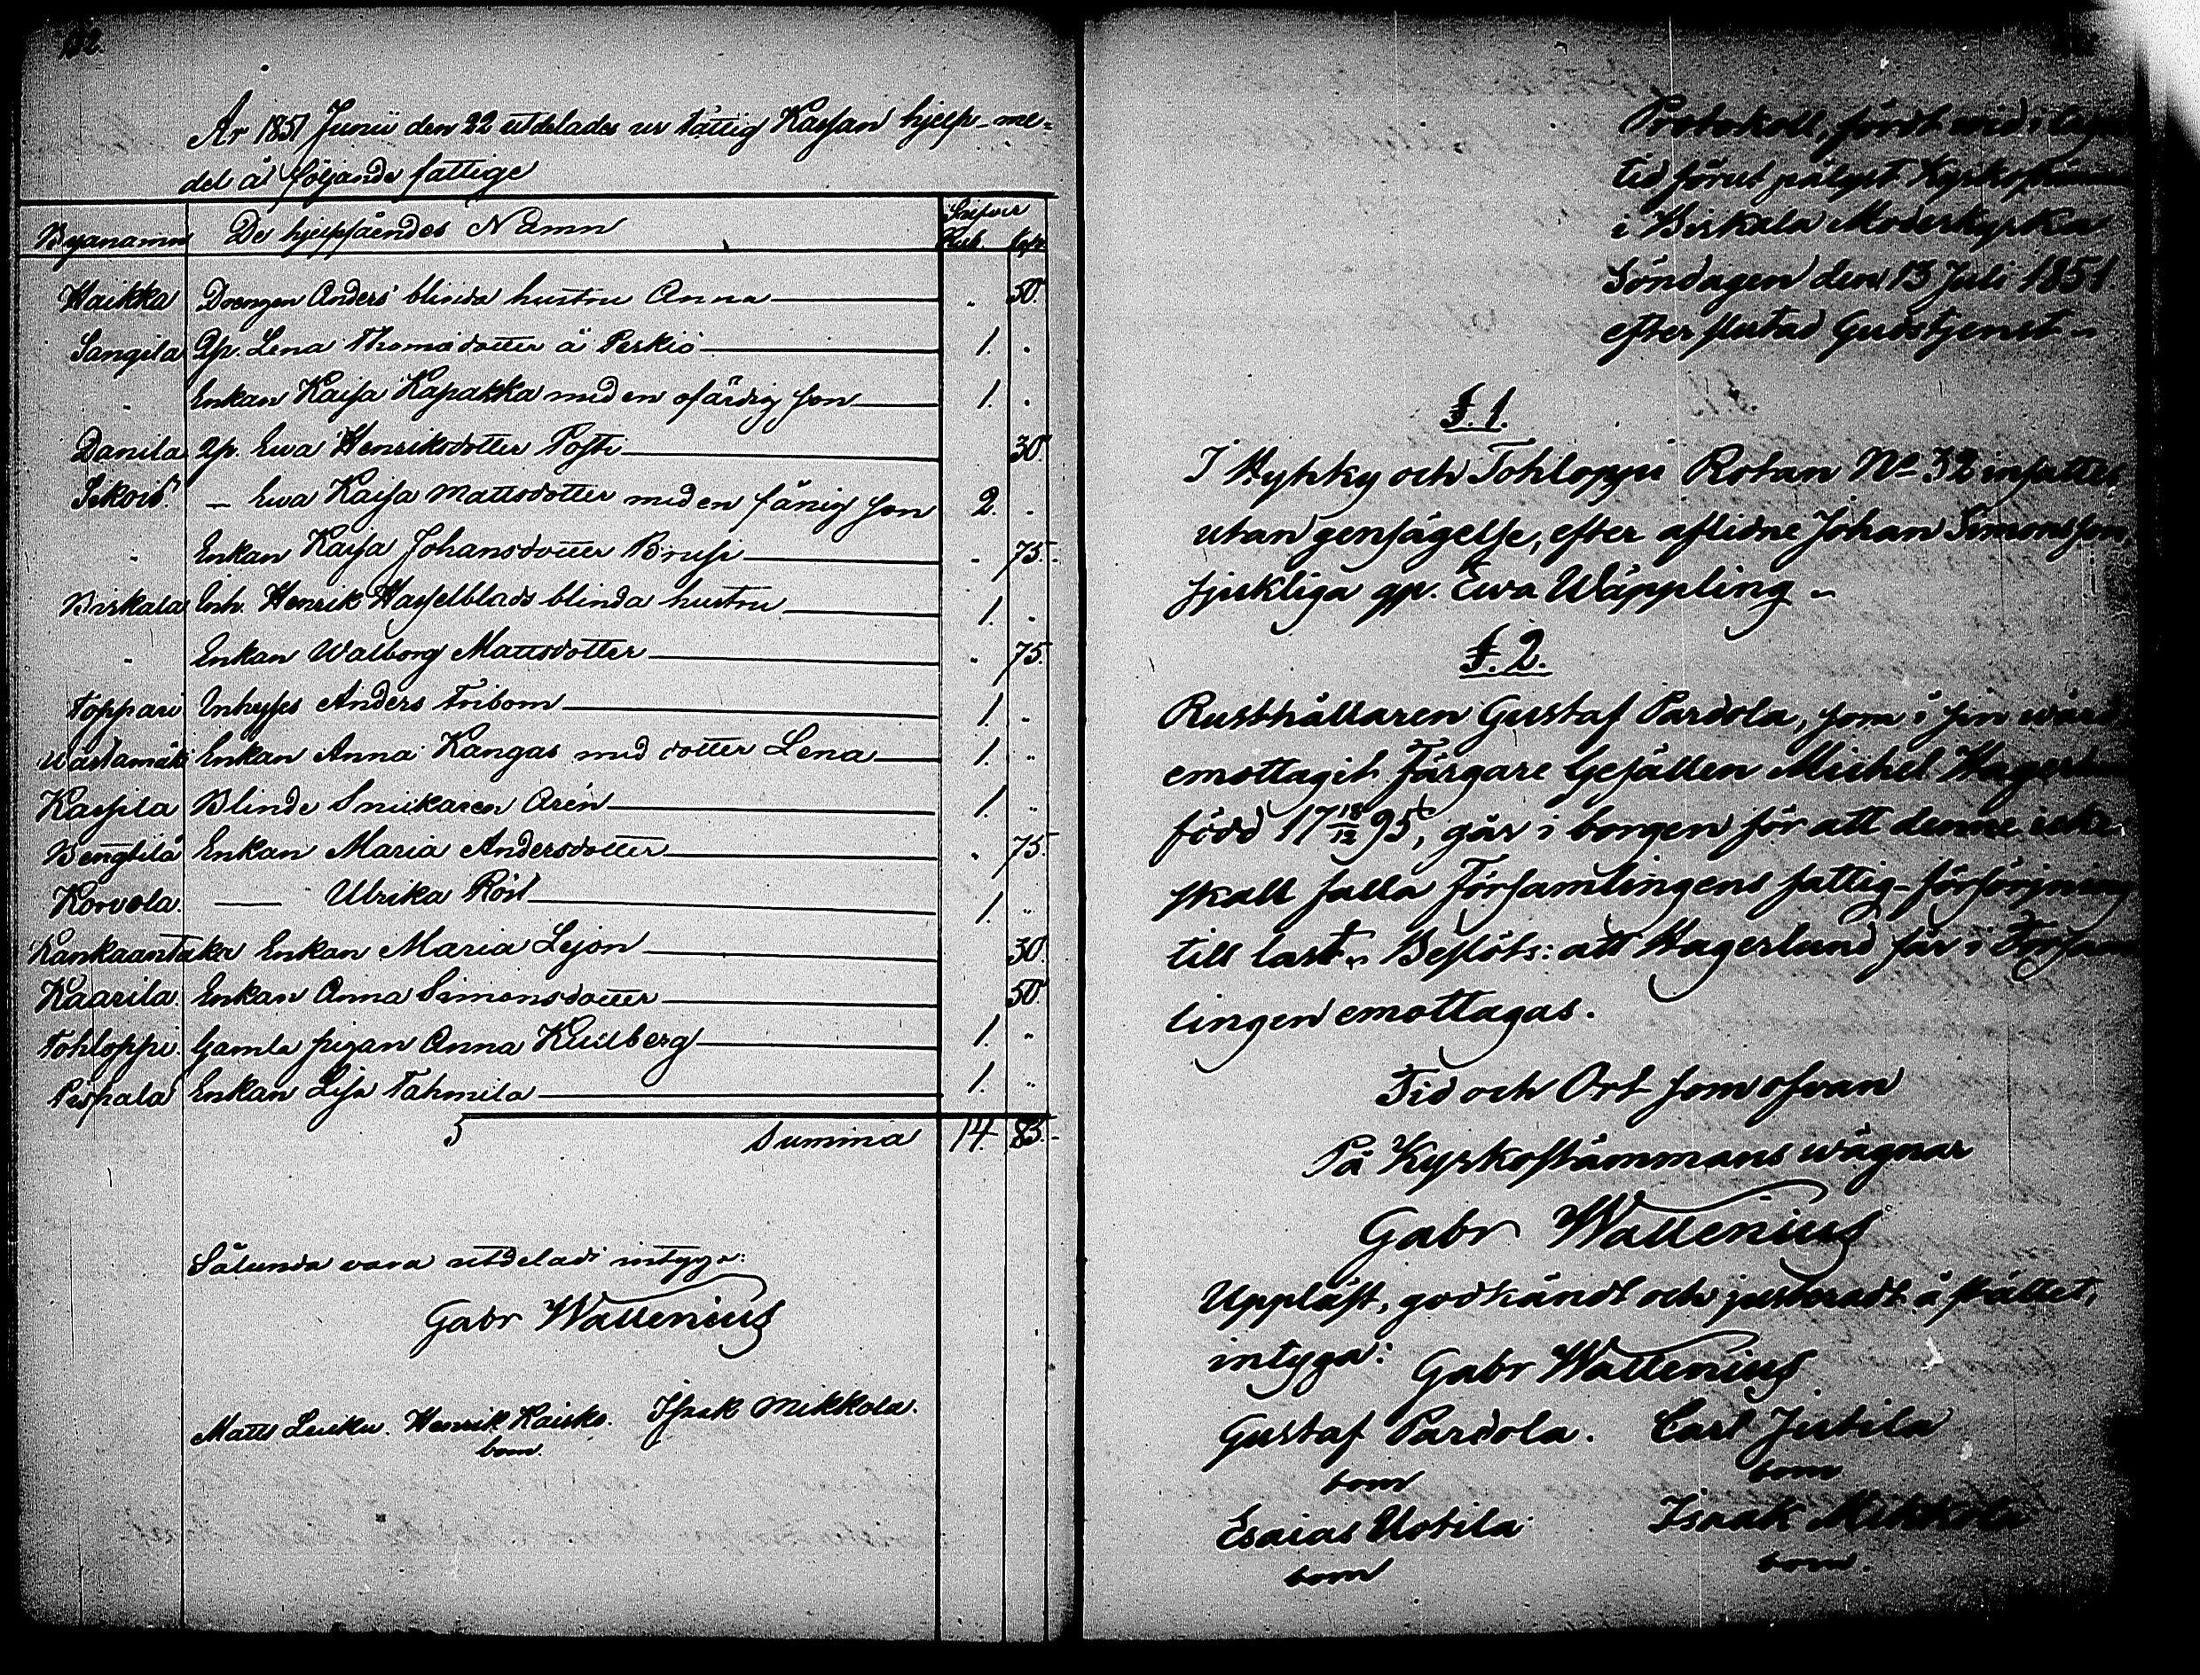 132.
År 1851 Junii den 22 utdelades ur fattig Kassan hjelp-me-
del åt följande fattige
Byanamn De hjelpfåendes Namn Silfver
Rub. Kop.
Haikka Drengen Anders' blinda hustru Anna . 50.
Sangila Qp. Lena Thomædotter å Peskiö 1. .
" Enkan Kaisa Kapakka med en ofärdig son 1. .
Danila Qp. Ewa Henriksdotter Posti 30.
Sikois. — Ewa Kaisa Mattsdotter med en fånig son 2. .
" Enkan Kaisa Johansdotter Brusi . 75.
Birkala Inh. Henrik Hasselblads blinda hustru 1. .
" Enkan Walborg Mattsdotter . 75.
Toppari Inhyses Anders Fribom 1. .
Wastamäki Enkan Anna Kangas med dotter Lena 1. "
Kassila Blinde Snickaren Arén 1. "
Bengtilä Enkan Maria Andersdotter . 75.
Korvola. — Ulrika Röst 1. "
Kankaantaka Enkan Maria Lejon 30.
Kaarila. Enkan Anna Simonsdotter 50.
Tohloppi. Gamla pigan Anna Kullberg 1. "
Pispala Enkan Lisa Tahmila 1. "
Summa 14. 85.
Sålunda vara utdeladt intyga:
Gabr Wallenius
Matts Leuku. Henrik Kaisko. Isaak Mikkola.
bom.
Protokoll, fördt wid i laga
tid förut pålyst Kyrkostämma
i Birkala Moderkyrka
Söndagen den 13 Juli 1851.
efter slutad Gudstjenst.
§. 1.
I Hyhky och Tohloppi Rotan No 32 insattes
utan gensägelse, efter aflidne Johan Simonsson,
sjukliga qp. Ewa Wäppling.
§. 2.
Rusthållaren Gustaf Pardola, som i sin wård
emottagit Färgare Gesällen Michel Hagerlund
född 17 18/12 95, går i borgen för att denne icke
skall falla Församlingens fattig-försörjning
till last. Beslöts: att Hagerlund får i Försam
lingen emottagas.
Tid och Ort som ofvan
På Kyrkostämmans wägnar
Gabr Wallenius
Uppläst, godkändt och justeradt å stället,
intyga: Gabr Wallenius
Gustaf Pardola. Carl Jutila
bom bom
Esaias Uotila Isaak Mikkola
bom bom.